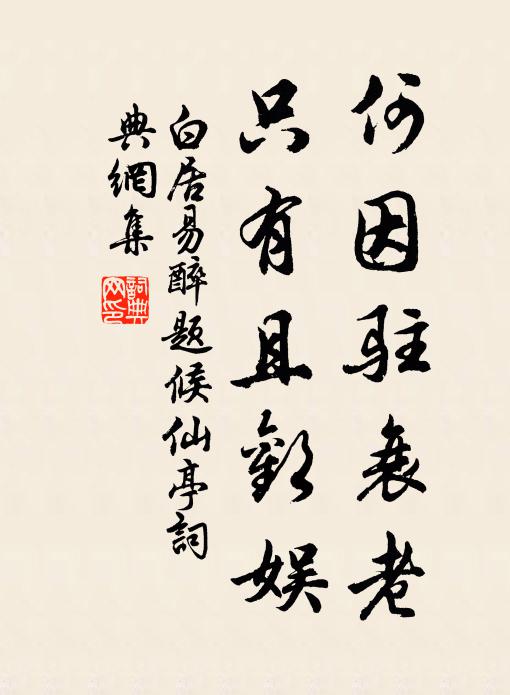 何因駐衰老
只有且歡娛
白居易醉題候仙亭詞
典網集
詞典
网印